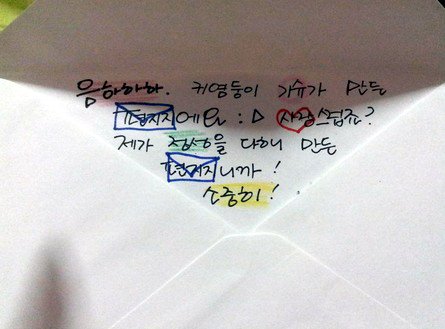 음하하하. 커염둥이 가슈가 만든
편지지에요 : D 사랑스럽죠?
제가 정성을 다해 만든
편지지니까!
소중히!